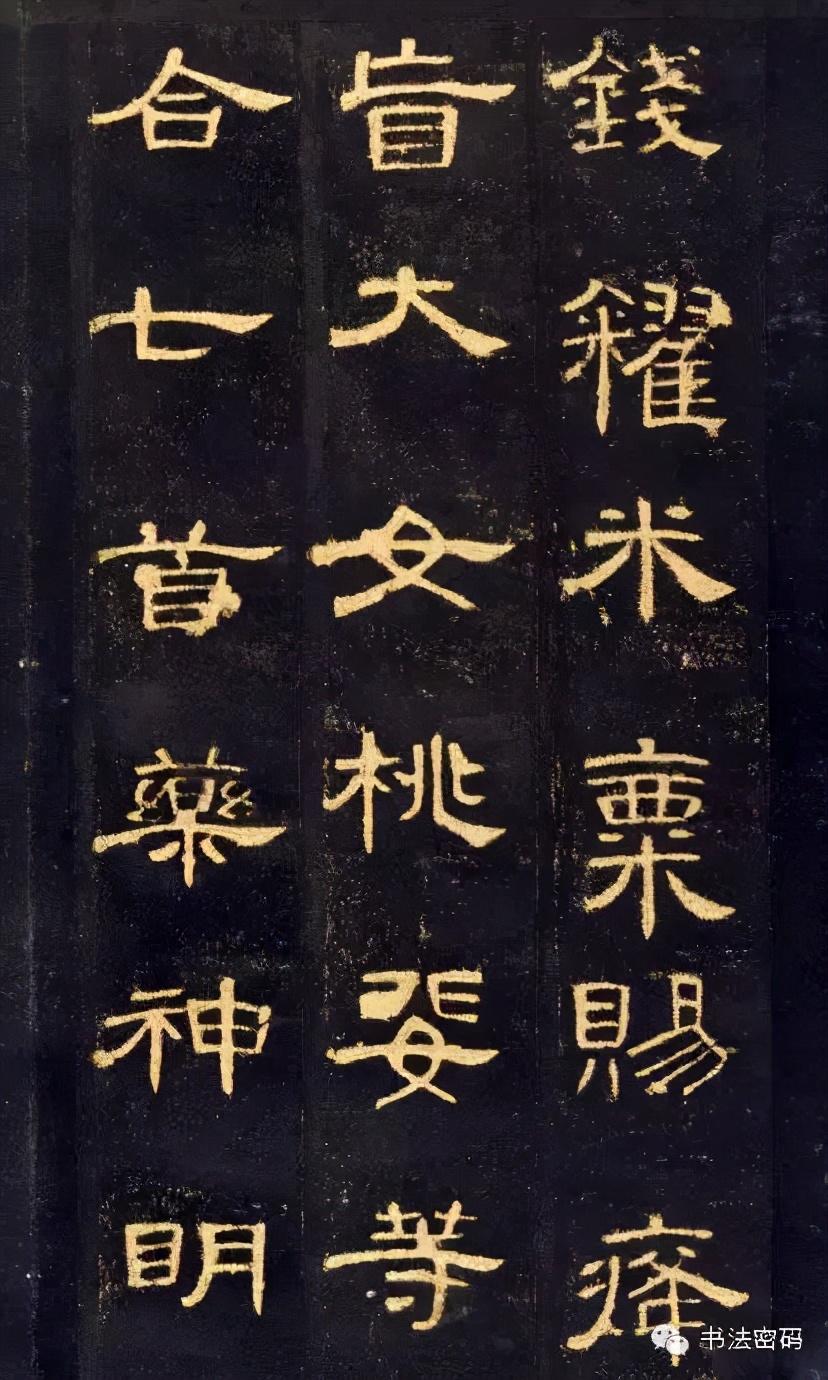 錢糴米粟賜癃
盲大女桃婓等
合七首藥神明
书法密码